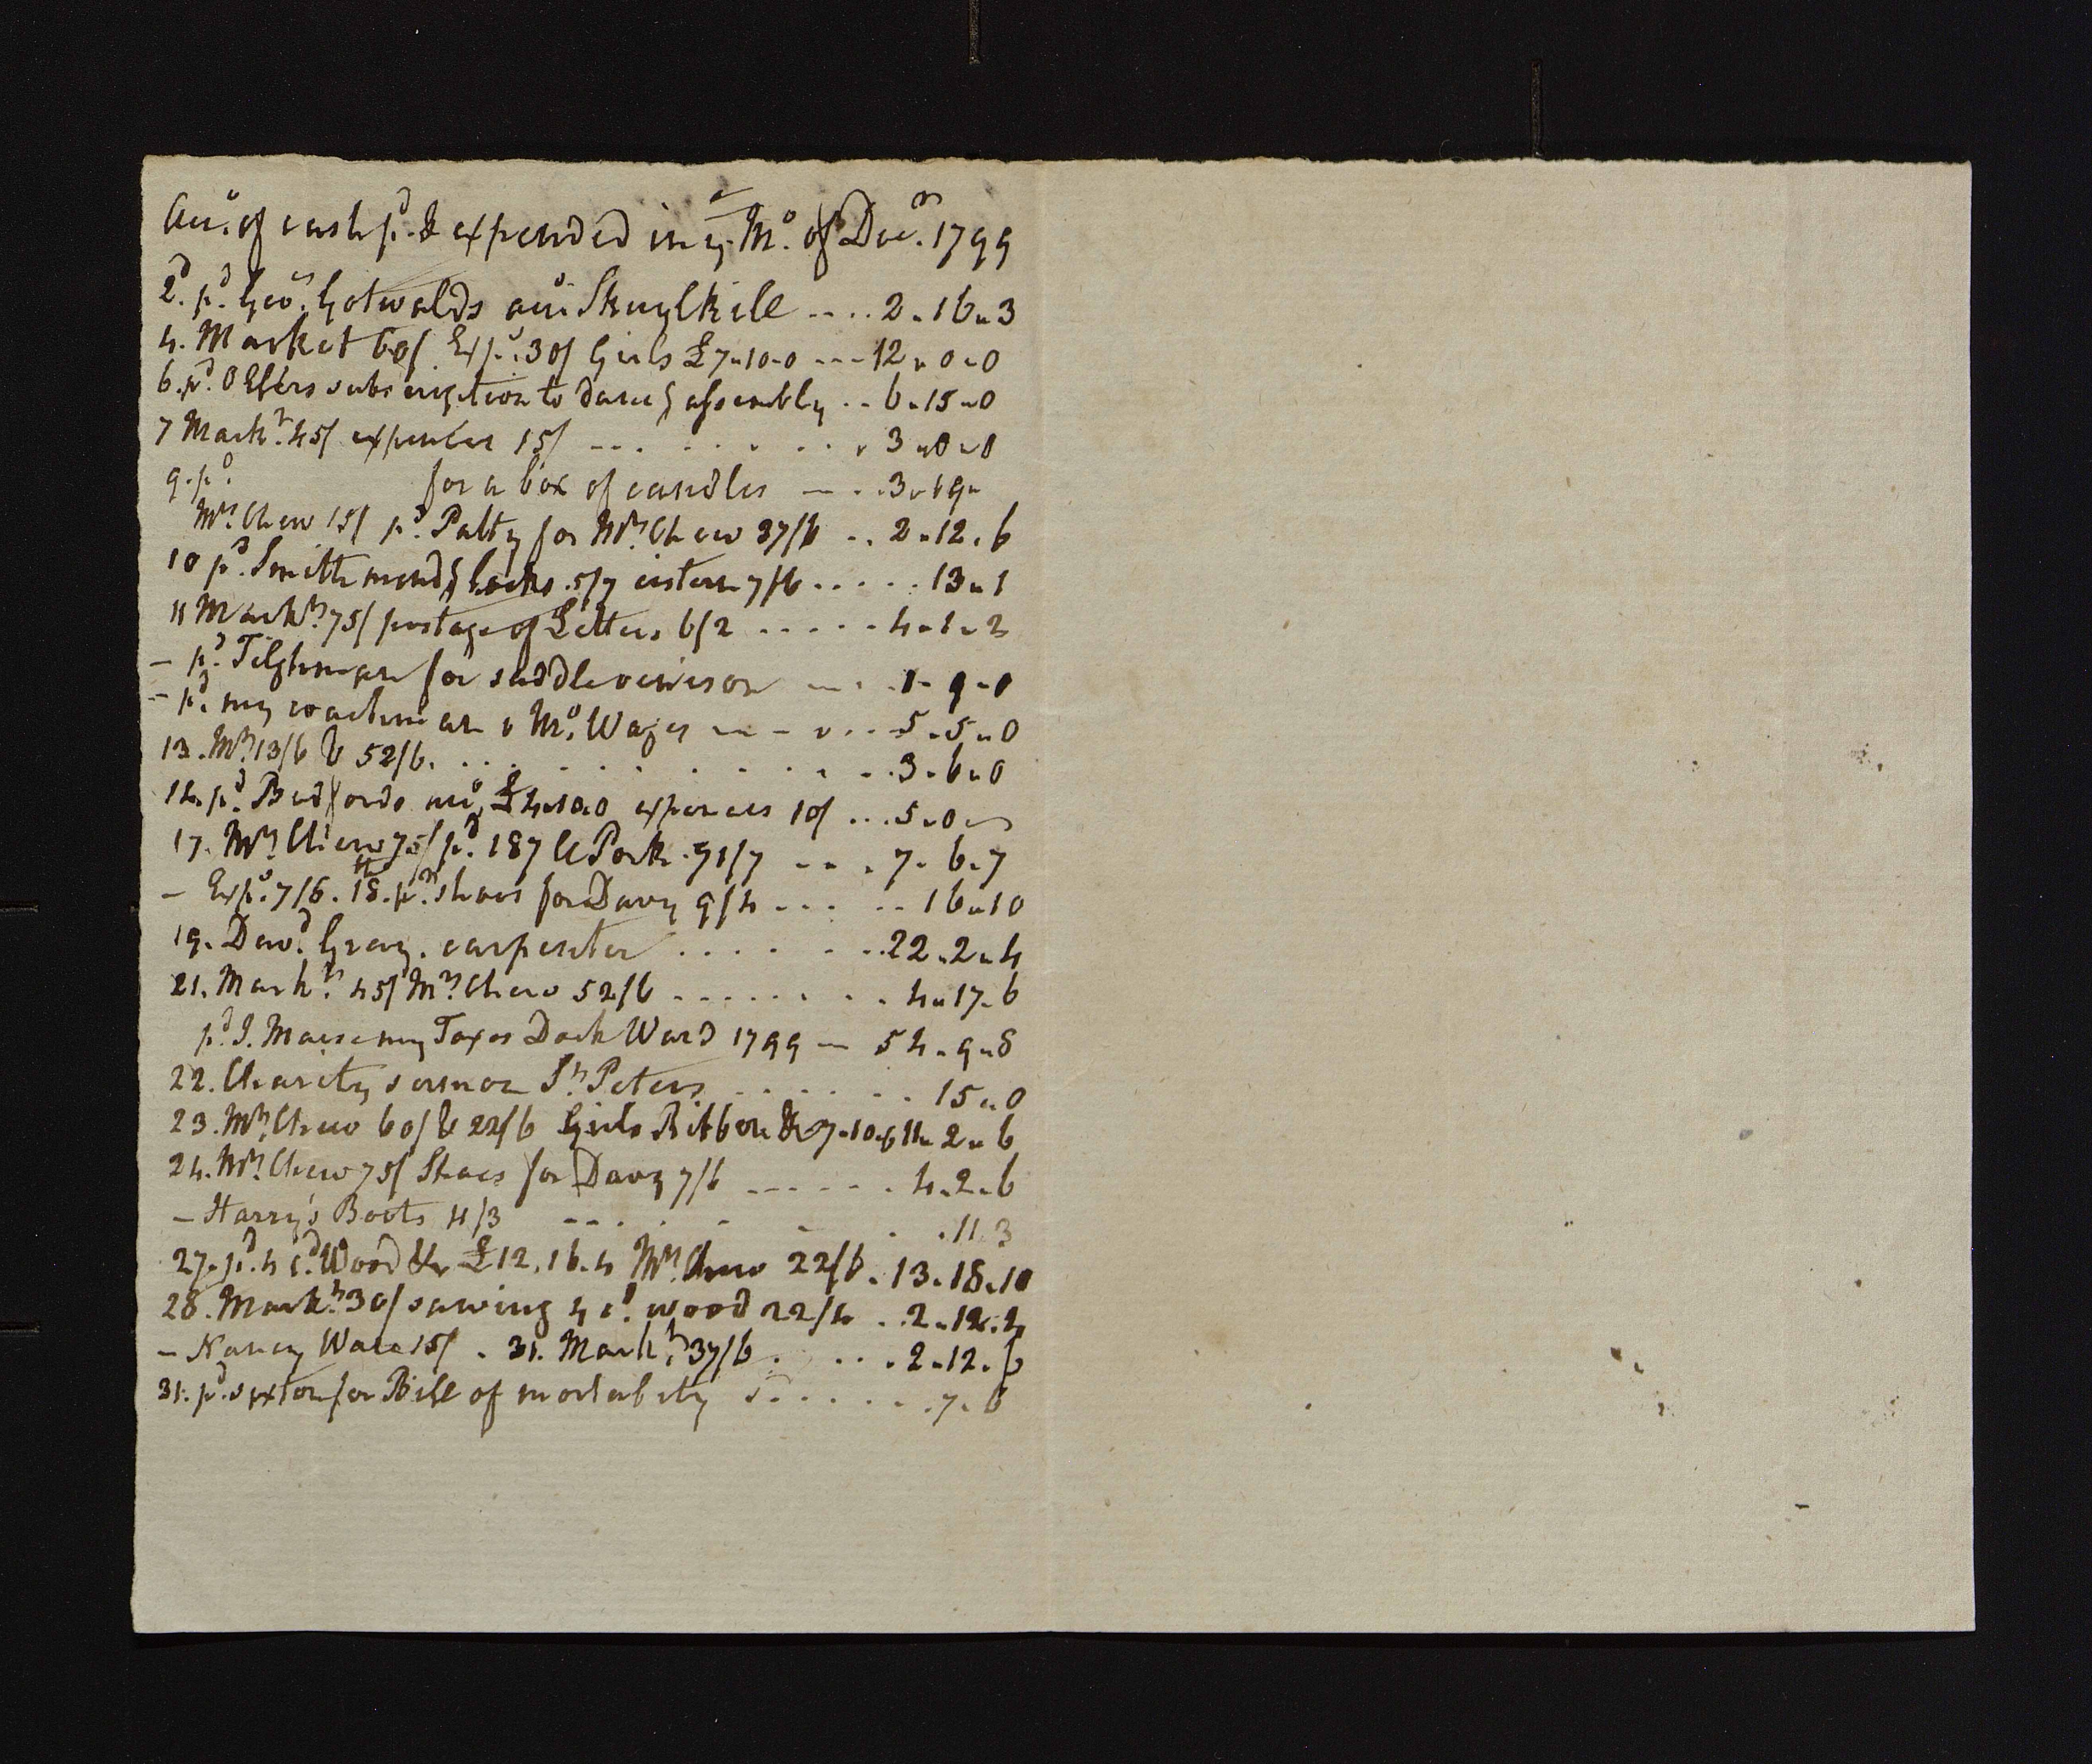 Acc.o of cash p.d & expended in y.e M.o of Dec.r 1799
2.d p.d Geo: Gotwalds acc.o Skuylkill .... 2 " 16 " 3
4. Market 60/ Exp.s 30/ Girls £7-10-0 --- 12 " 0 " 0
6. p.d Ellers subscription to danc.g assembly .. 6 " 15 " 0
7 Mark.t 45/ expences 15/ --- . . . . 3 " 0 " 0
9. p.d for a box of candles — . . 3 " 19 "
M.rs Chew 15/ p.d Patty for M.rs Chew 37/6 .. 2 " 12 " 6
10 p.d Smith mend.g locks 5/7 cistern 7/6 ..... 13 " 1
11 Mark.t 75/ postage of Letters 6/2 ..... 4 " 1 " 2
— p.d Tilghman for saddle venison --- . 1 " 9 " 0
— p.d my coachman 1 M.o Wages --- ... 5 " 5 " 0
13. M.rs 13/6 & 52/6. . . . . . . . . 3 " 6 " 0
14. p.d Bedfords acc.o £4 " 10 " 0 expences 10/ ... 5 " 0 "
17. M.rs Chew 75/ p.d 187 lb Pork 71/7 ... . 7 " 6 " 7
— Exp.s 7/6. 18.th p.r shoes for Davy 9/4 ... .. 16 " 10
19. Dav.d Gray. carpenter . . . . . . 22 " 2 " 4
21. Mark.t 45/ M.rs Chew 52/6 ........ 4 " 17 " 6
p.d J. my Taxes Dock Ward 1799 — 54 " 9 " 8
22. Charity sermon S.t Peters . . . . . . 15 " 0
23. M.rs Chew 60/ & 22/6 Girls Ribbon & 7-10-0 11 " 2 " 6
24. M.rs Chew 75/ Shoes for Davy 7/6 ------ 4 " 2 " 6
— Harry's Boots 11/3 --- . . . . . 11 3
27. p.d 4 c.d Wood &c £12. 16. 4 M.rs Chew 22/6 . 13 " 18 " 10
28. Mark.t 30/ sawing 4 c.d wood 22/4 .. 2 " 12 " 4
— Nancy 15/ . 31. Mark.t 37/6 . ... 2 " 12 " 6
31. p.d sexton for Bill of mortality . . . . . . 7 " 6